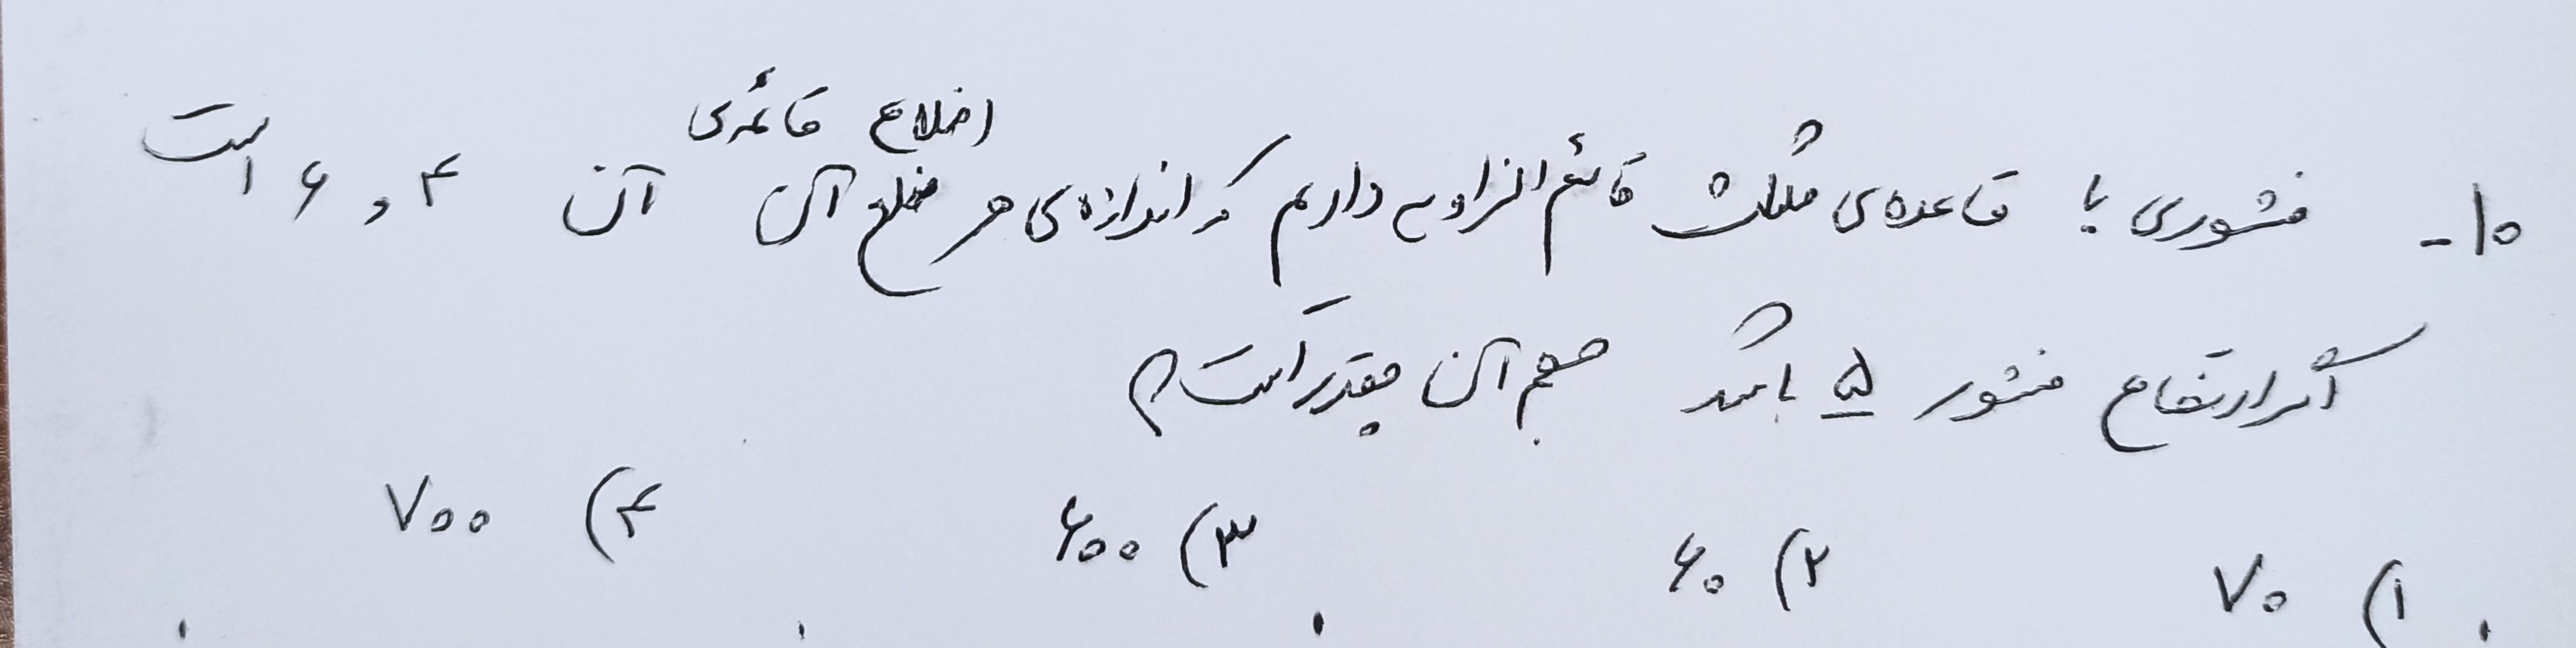 ۱۰- منشوری با قاعده‌ی مثلث قائم الزاویه داریم که اندازه‌ی هر ضلع آن اضلاع قائمه‌ی آن ۴ و ۶ است
اگر ارتفاع منشور ۵ باشد حجم آن چقدر است؟
۱) ۷۰ ۲) ۶۰ ۳) ۶۰۰ ۴) ۷۰۰